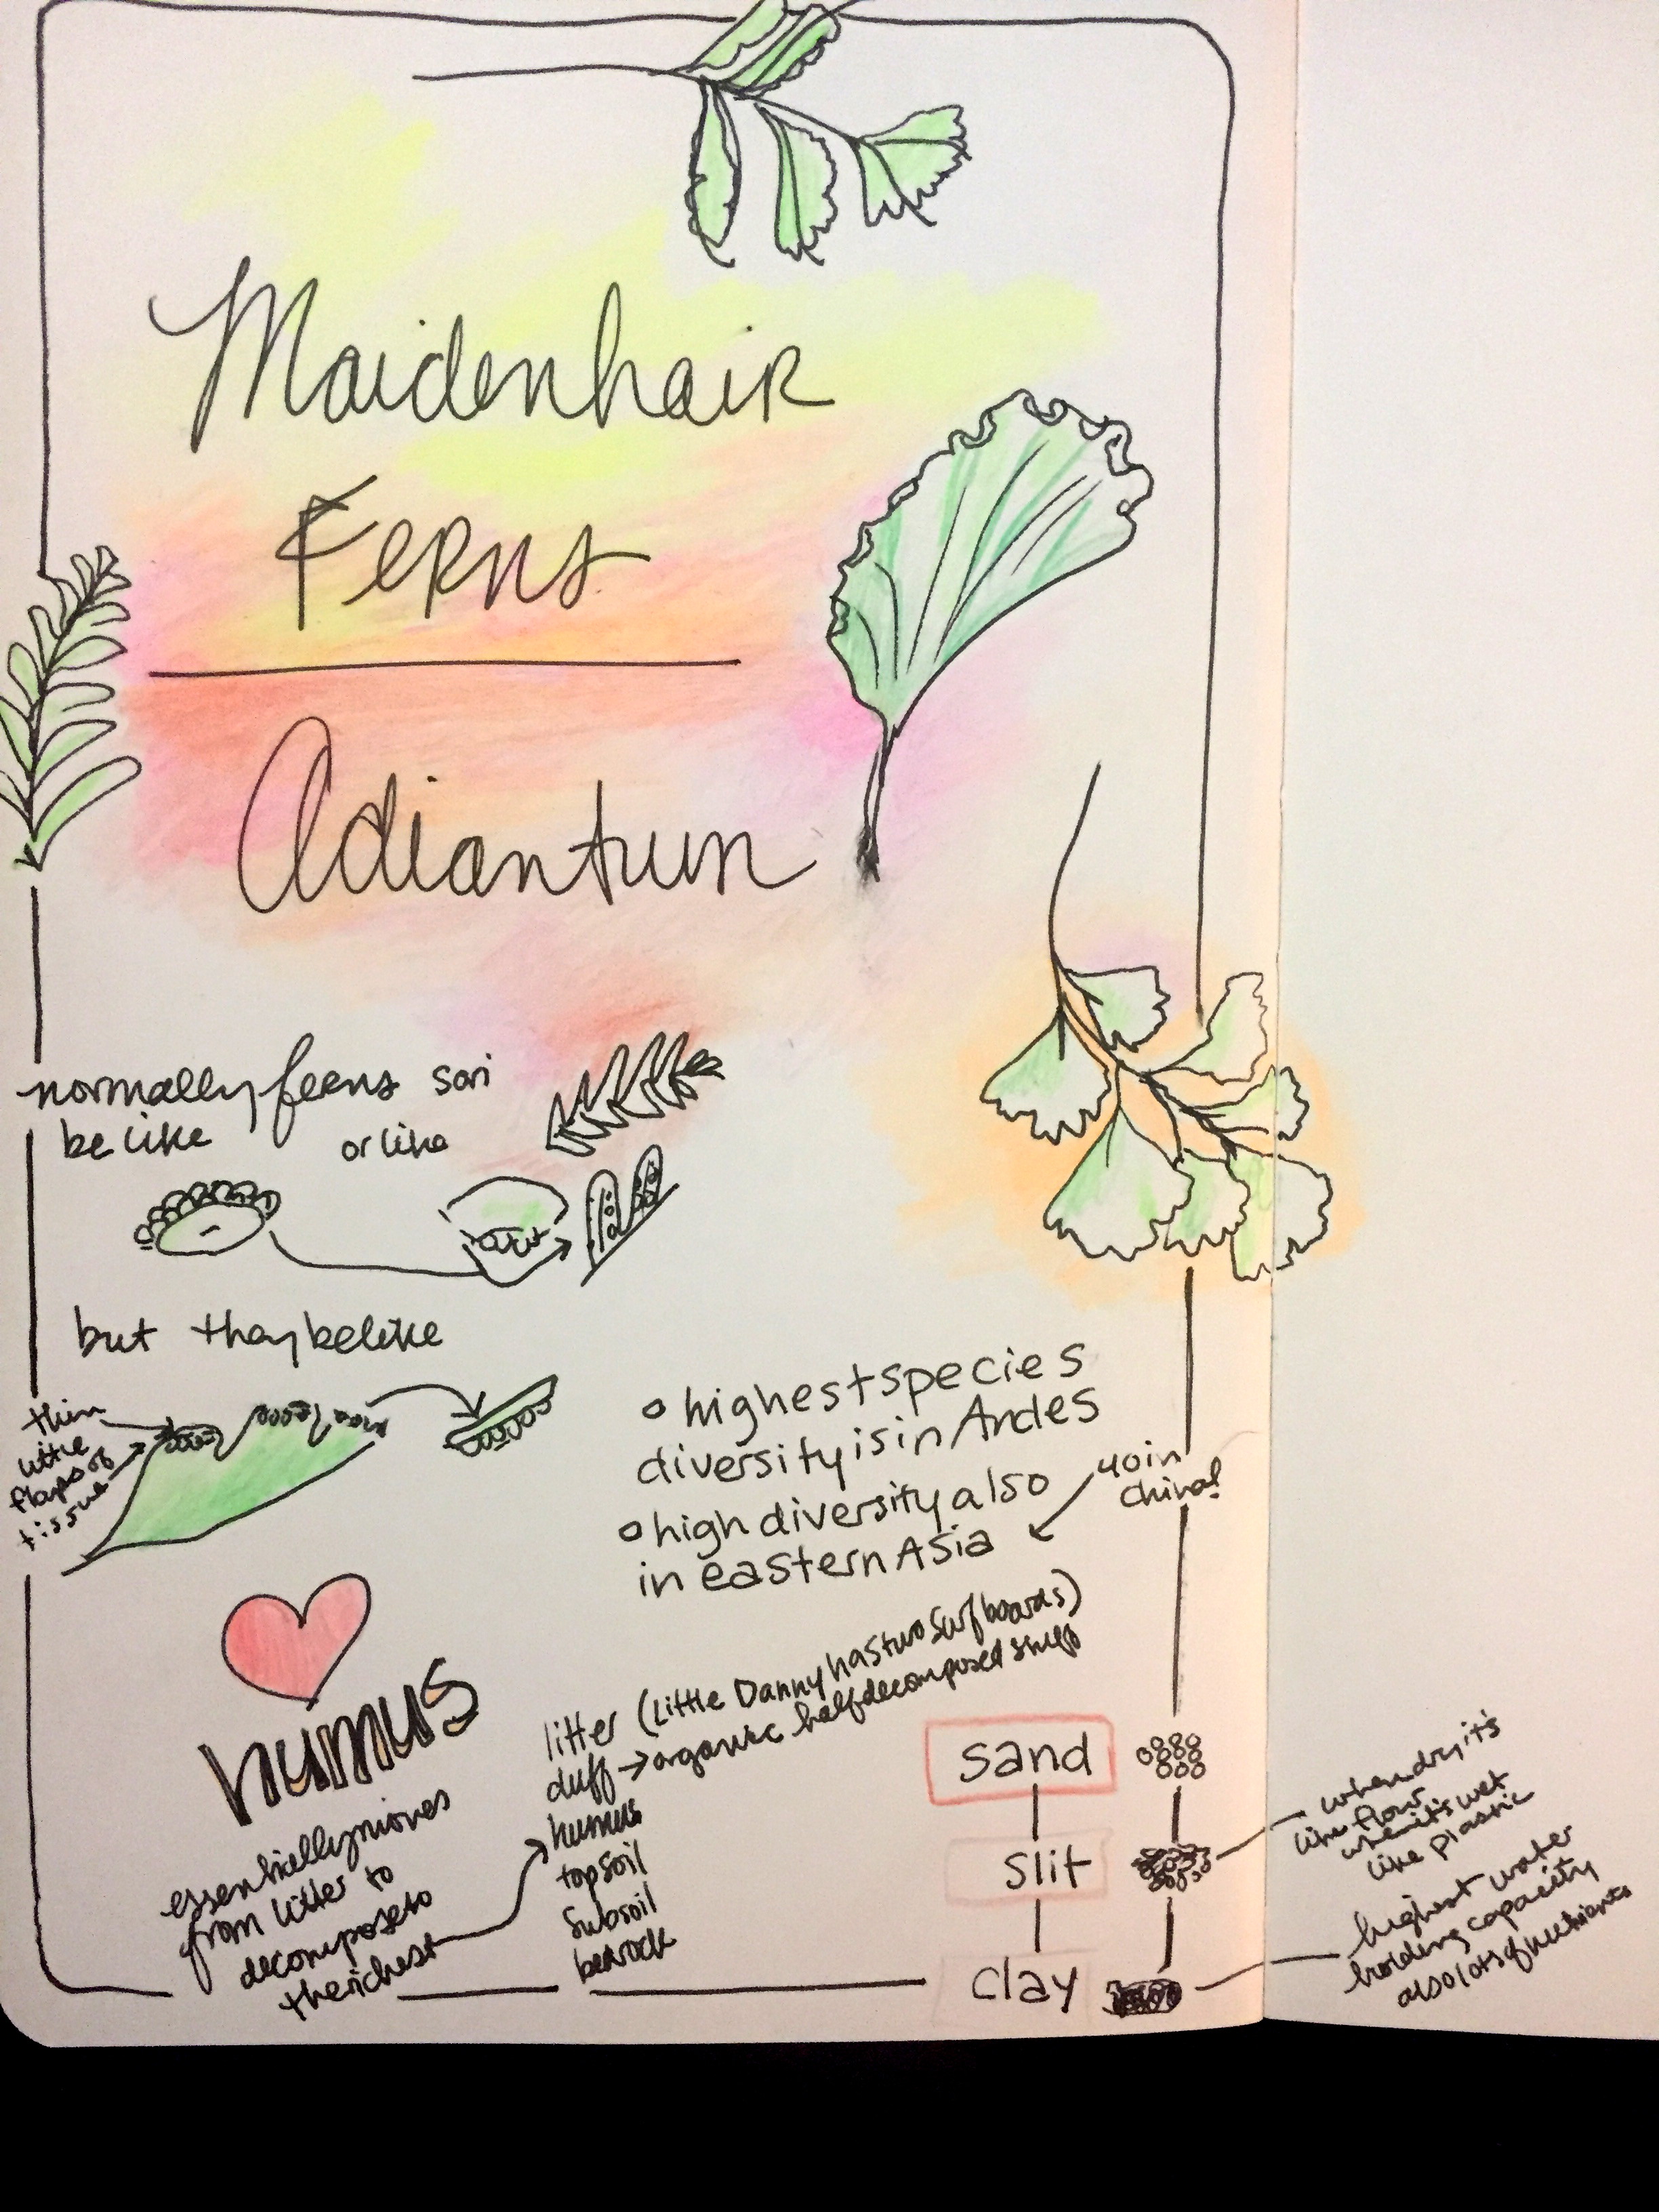 Maidenhair
Ferns
Adiantum
normally ferns sori
be like
or like
but they be like
thin
little
flaps of
tissue
• highest species
diversity is in Andes
• high diversity also
in eastern Asia
40 in
China!
humus
essentially moves
from litter to
decompose to
the richest
litter (Little Danny has two surfboards)
duff → organic half decomposed stuff
humus
topsoil
subsoil
bedrock
sand
slit
clay
when dry it's
like flour
when it's wet
like plastic
highest water
holding capacity
also lots of nutrients